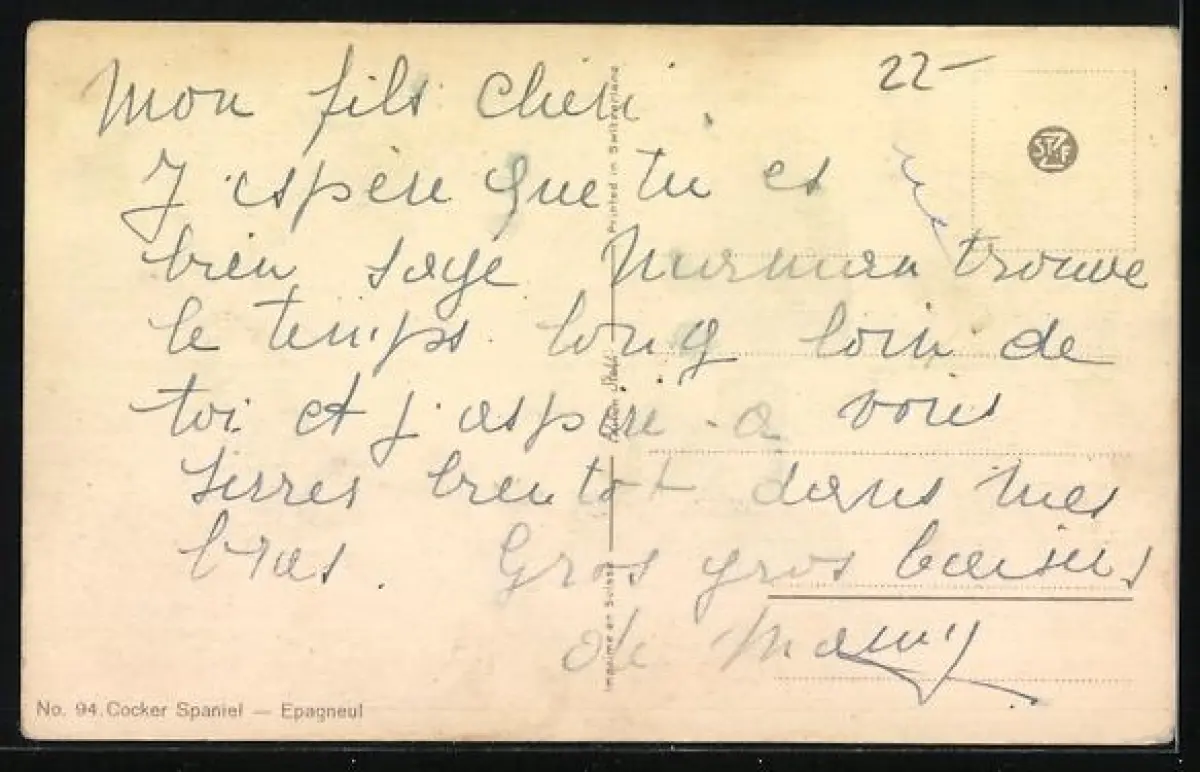 22-
Mon fils chéri.
J'espère que tu es
bien sage Maman trouve
le temps long loin de
toi et j'aspire a vous
serrer bientot dans mes
bras. Gros gros baisers
de Mamy
Printed in Switzerland
Edition Stehli
Imprimé en Suisse
No. 94. Cocker Spaniel — Epagneul